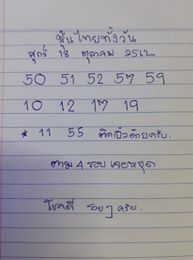 หุ้นไทยทั้งวัน
ศุกร์ 18 ตุลาคม 2562
50 51 52 57 59
10 12 17 19
* 11 55 ติดเบิ้ลด้วยครับ.
ตาม 4 รอบ เจอหยุด
โชคดี รวยๆ ครับ.